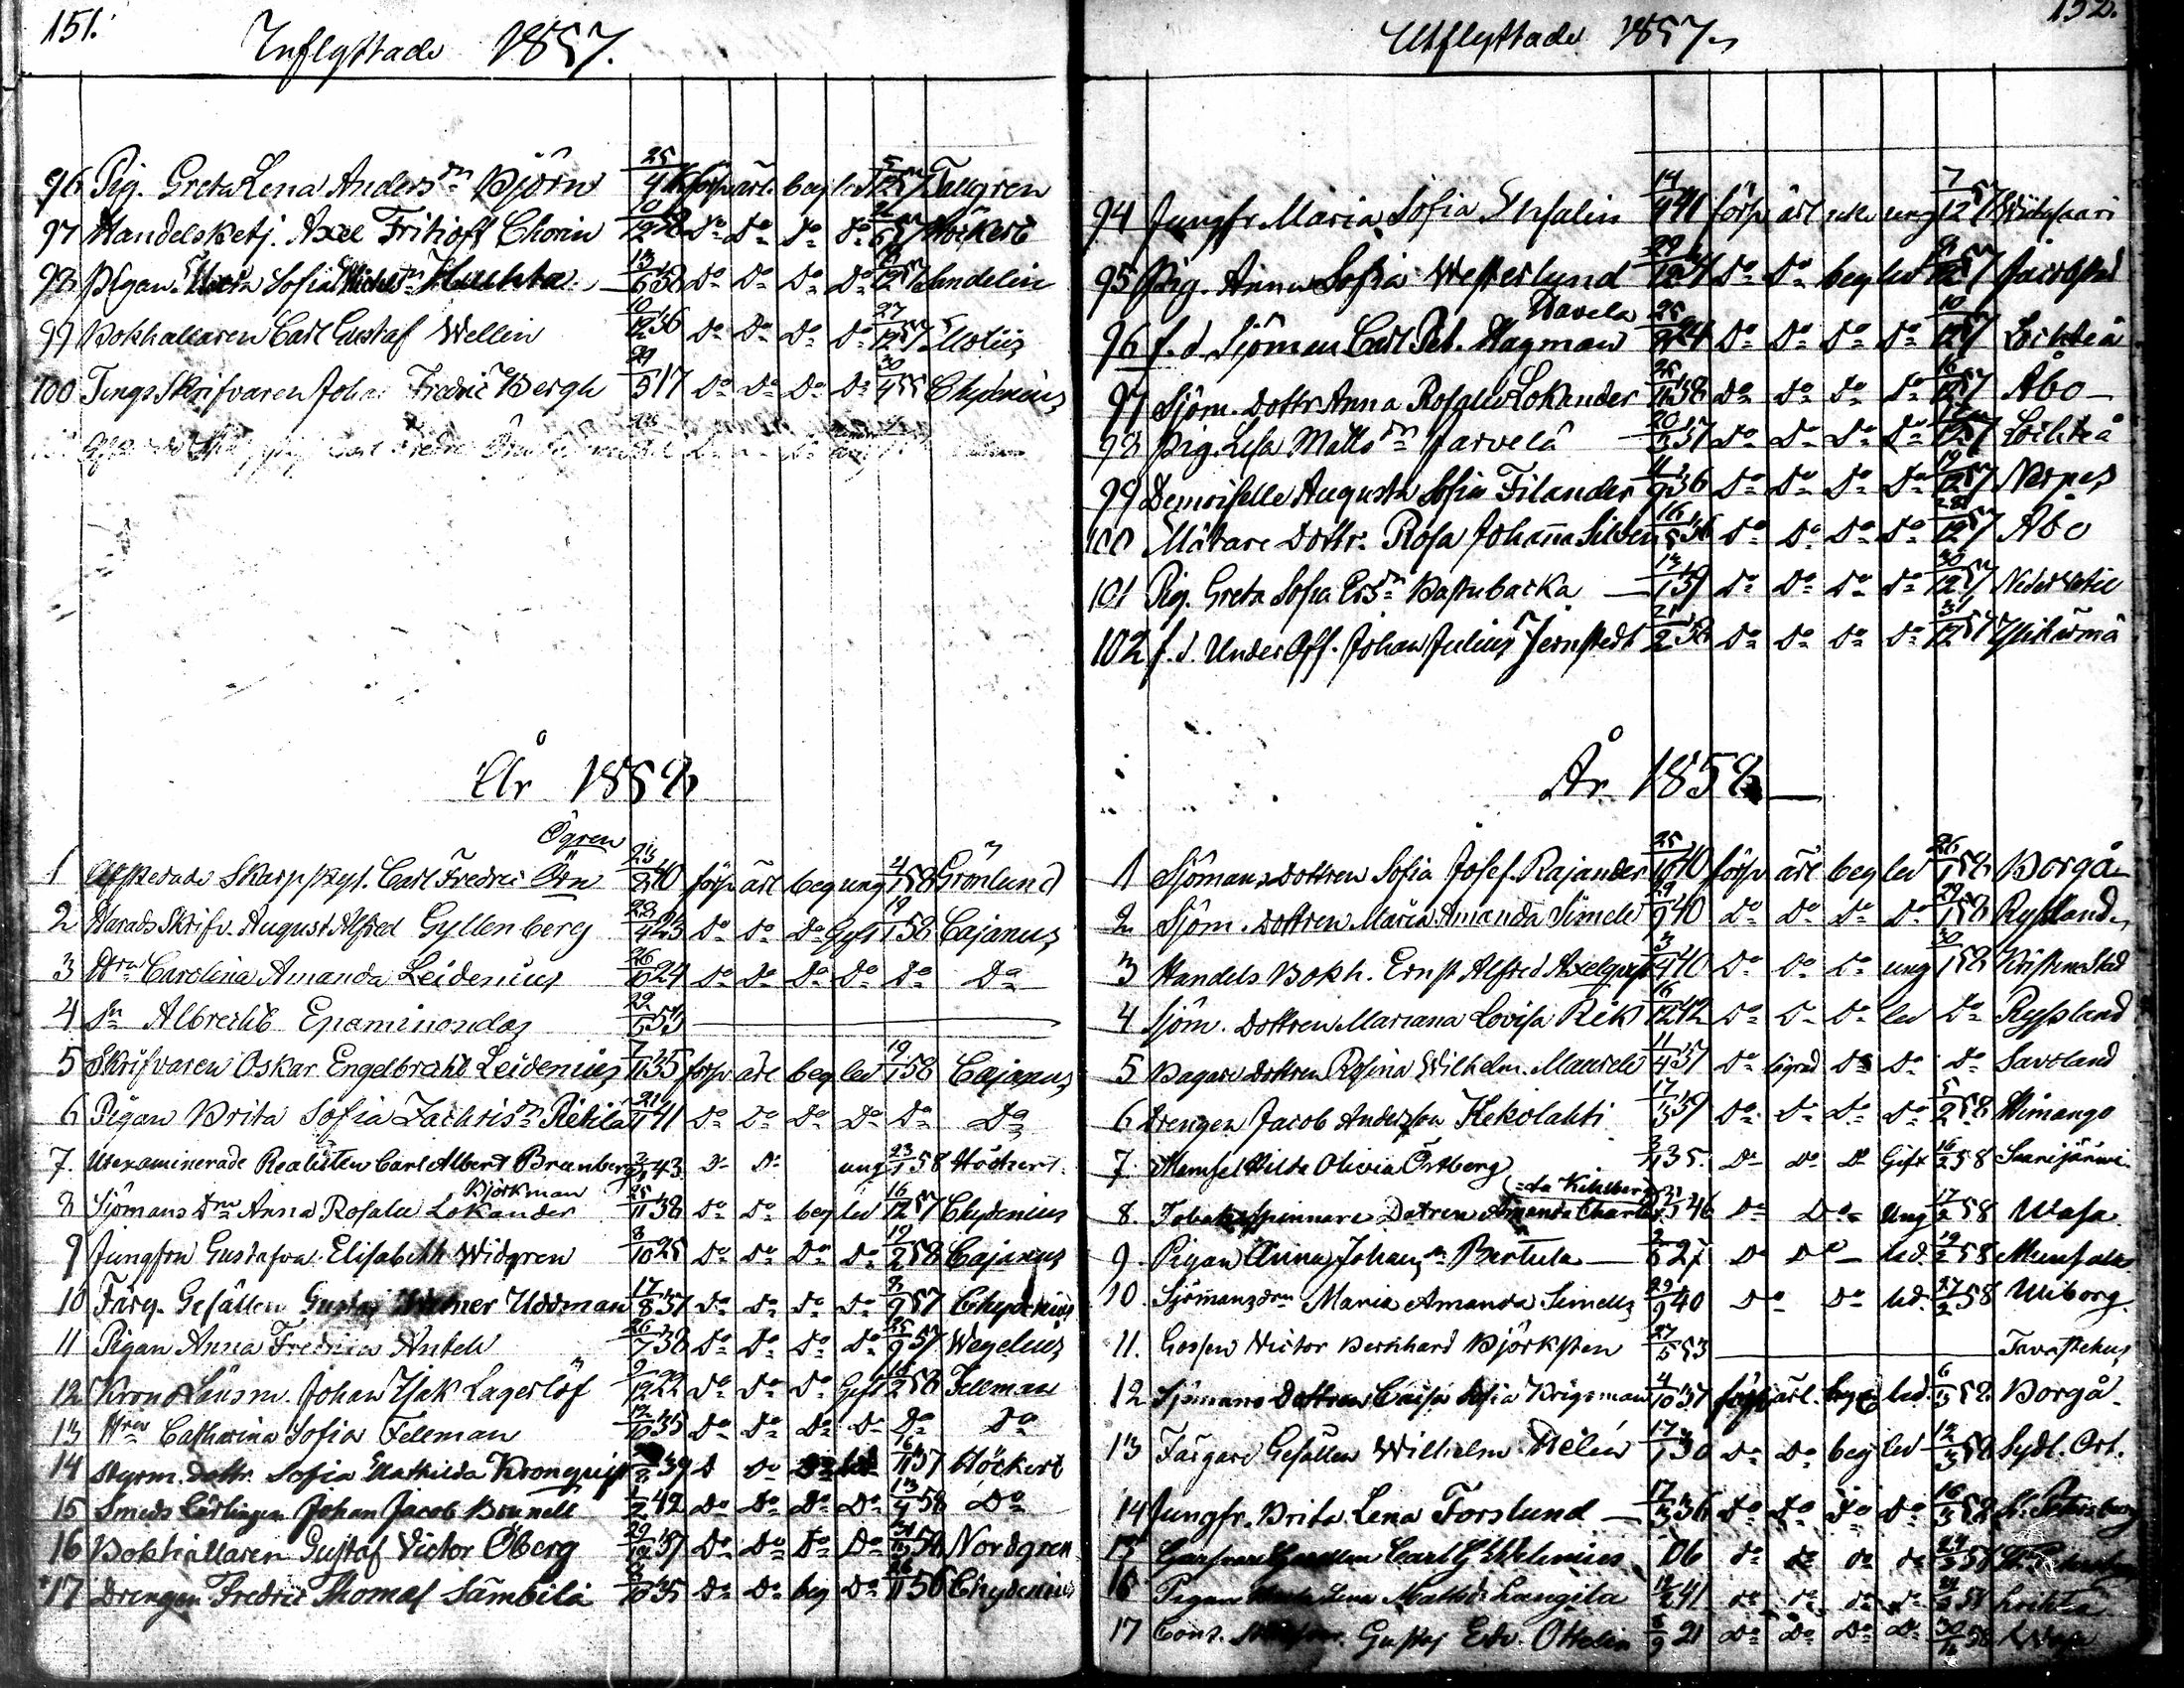 151.
Inflyttade 1857.
96 Pig. Greta Lena Anders dr Björn 25/4 förs. ärl. beg led 5/12 57 Tallgren
97 Handelsbetj. Axel Frithioff Chorin Do Do Do Do 57 Höckert
98 Pigan Sofia 13/6 38 Do Do Do Do 57 Sundelin
99 Bokhallaren Carl Gustaf Wellin 10/12 36 Do Do Do Do 27/12 57
100 Tings Skrifvaren Johan Fredric Bergh 29/5 17 Do Do Do Do 30/4 55 Chydenius
År 1858
Ögren
1 Afskedade Skarpskyt. Carl Fredric Örn 40 förs. ärl beg ung 4/1 58 Grönlund
2 Harads Skrifv. August Alfred Gyllenberg 28/4 23 Do Do Do Gift 19/1 58 Cajanus
3 Carolina Amanda Leidenius 24 Do Do Do Do Do Do
4 Sn Albrecht Epaminondas 29 55
5 Skrifvaren Oskar Engelbrekt Leidenius 7/11 35 förs ärl beg led 19/1 58 Cajanus
6 Pigan Brita Sofia Zachris dr Rekila 41 Do Do Do Do Do Do
7. Utexaminerade Realisten Carl Albert Branberg 43 Do Do ung 23/1 58 Höckert
Björkman
8 Sjömans Dr Anna Rosalie Lokander 25/11 38 Do Do beg led 16/12 57 Chydenius
9 Jungfru Gustafva Elisabeth Widgren 8/10 25 Do Do Do Do 19/2 58 Cajanus
10 Färg. Gesällen Gustaf Uddman 17/8 37 Do Do Do Do 57 Chydenius
11 Pigan Anna Fredrica Antell 26/7 38 Do Do Do Do 25/9 57 Wegelius
12 Krono Länsm. Johan Isak Lagerlöf 9/12 22 Do Do Do Gift 58 Fellman
13 Catharina Sofia Fellman 12/10 35 Do Do Do Do Do Do
14 Styrm. dottr. Sofia Mathilda Kronquist 39 D Do 16/11 57 Höckert
15 Smeds Lärlingen Johan Jacob Brunell 42 Do Do Do Do 13/4 58 Do
16 Bokhallaren Gustaf Victor Öberg 29 37 Do Do Do Do 58 Nordgren
17 Drengen Fredric Thomas Sämbilä 35 Do Do beg Do 56 Chydenius
152.
Utflyttade 1857.
94 Jungfr. Maria Sofia 14 förs ärl ung 7/12 57
95 Pig. Anna Sofia Westerlund 29 Do Do beg led 57 Jacobstad
Havela
96 f.d. Sjöman Carl Pet. Hagman 25 24 Do Do Do Do 10/12 57 Lochteå
97 Sjöm. dottr Anna Rosalie Lokander 25/11 38 Do Do Do Do 16/12 57 Åbo
98 Pig. Lisa Matts dr Jarvelä 20/3 37 Do Do Do Do 57 Lochteå
99 Demoiselle Augusta Sofia Filander 11/9 36 Do Do Do Do 19/12 57 Nerpes
100 Mätare Dottr. Rosa Johanna Silven 16 36 Do Do Do Do 28/12 57 Åbo
101 Pig. Greta Sofia Ers dr Bastubacka 13/1 37 Do Do Do Do 30/12 57 Neder Vetil
102 f.d. Under Off. Johan Julius Jernstedt 21/2 36 Do Do Do Do 31/12 57 Ylihärmä
År 1858
1 Sjömans dottren Sofia Josef. Rajander 25/10 40 förs ärl beg led 26/1 58 Borgå
2 Sjöm. dottren Maria Amanda Simelii 29/9 40 Do Do Do Do 29/1 58 Ryssland
3 Handels Bokh. Ernst Alfred Axelquist 3/9 40 Do Do Do ung 30/1 58 Kristinestad
4 Sjöm. dottren Mariana Lovisa Rik 16/12 42 Do Do Do led Do Ryssland
5 Bagare dottren Rosina Wilhelm. Maurell 11/4 37 Do Do Do Do Savoland
6 Drengen Jacob Andersson Kekolahti 17/3 37 Do Do Do Do 5/2 58 Himango
7. Mamsel Hilda Olivia Östberg 35. Do Do Do Gift 16/2 58 Saarijärvi
8. Tobaksspinnare Dotren Amanda Charl. Kihlberg 46 Do Do Ung 17/2 58 Wasa
9. Pigan Anna Johans dr Bertula 27 D Do led. 19/2 58 Munsala
10. Sjömansdrn Maria Amanda Simelii 29/9 40 Do Do led. 27/2 58 Wiborg.
11. Gossen Victor Bernhard Björksten 27/5 53 Tavastehus
12 Sjömans Dottren Caisa Sofia Krigsman 4/10 37 förs ärl. beg led. 6/3 58 Borgå
13 Färgare Gesällen Wilhelm Melén 17/1 30 Do Do beg led 12/3 58 Sydl. Ort.
14 Jungfr. Brita Lena Forslund 17 36 Do Do Do Do 16/3 58 St. Petersburg
15 Garfvare Gesällen Carl G. Helenius 06 do do do do 58
16 Pigan Lena Matts dr Langila 41 do do do do 58 Lochteå
17 Gustaf Edv. Ottelin 8/9 21 Do Do Do D. 58